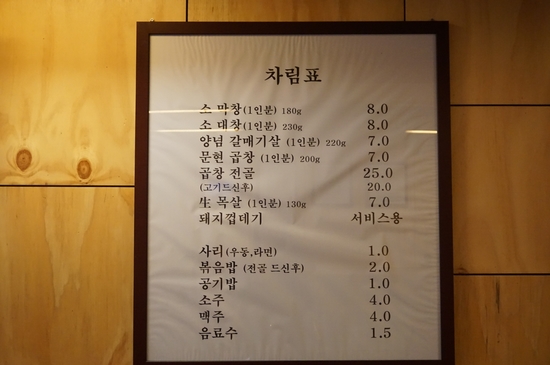 차림표
소 막창(1인분) 180g 8.0
소 대창(1인분) 230g 8.0
양념 갈매기살 (1인분) 220g 7.0
문현 곱창 (1인분) 200g 7.0
곱창 전골 25.0
(고기드신후) 20.0
生 목살 (1인분) 130g 7.0
돼지껍데기 서비스용
사리(우동,라면) 1.0
볶음밥 (전골 드신후) 2.0
공기밥 1.0
소주 4.0
맥주 4.0
음료수 1.5